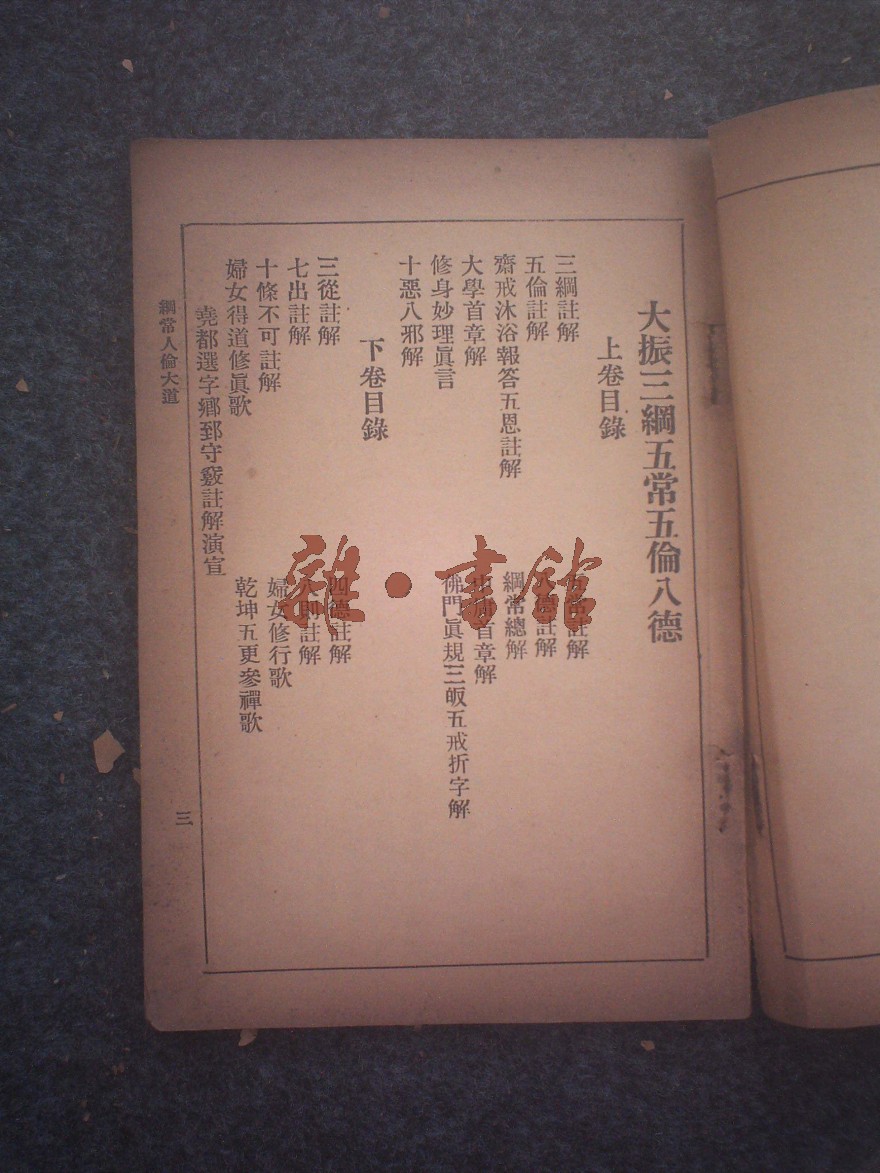 大振三綱五常五倫八德
上卷目錄
三綱註解
五常註解
五倫註解
八德註解
齋戒沐浴報答五恩註解
綱常總解
大學首章解
中庸首章解
修身妙理眞言
佛門眞規三皈五戒折字解
十惡八邪解
下卷目錄
三從註解
四德註解
七出註解
八則註解
十條不可註解
婦女修行歌
婦女得道修眞歌
乾坤五更參禪歌
堯都選字鄉郅守竅註解演宣
綱常人倫大道
三
雜·書館